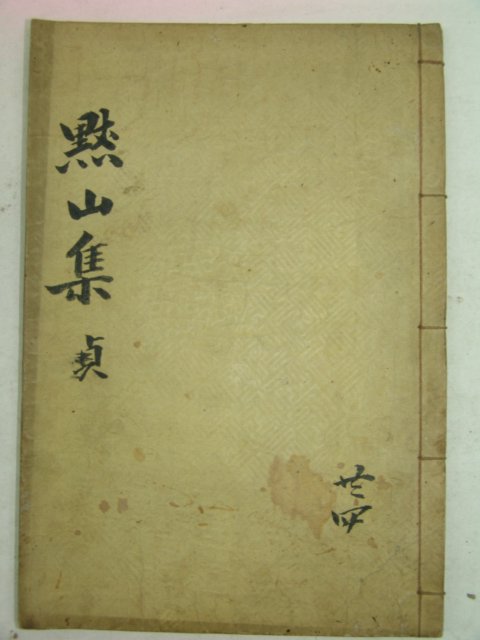 黙山集 貞
共四